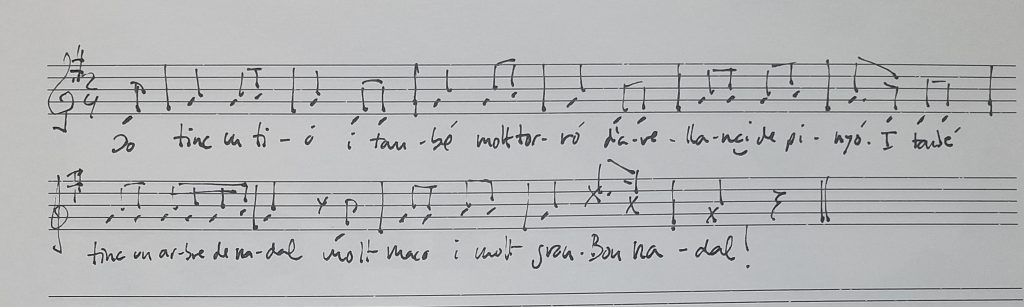 2 4
Jo tinc un ti-ó i tam-bé molt tor-ró d'a-ve-lla-na i de pi-nyó. I també
tinc un ar-bre de na-dal molt maco i molt gran. Bon na-dal!